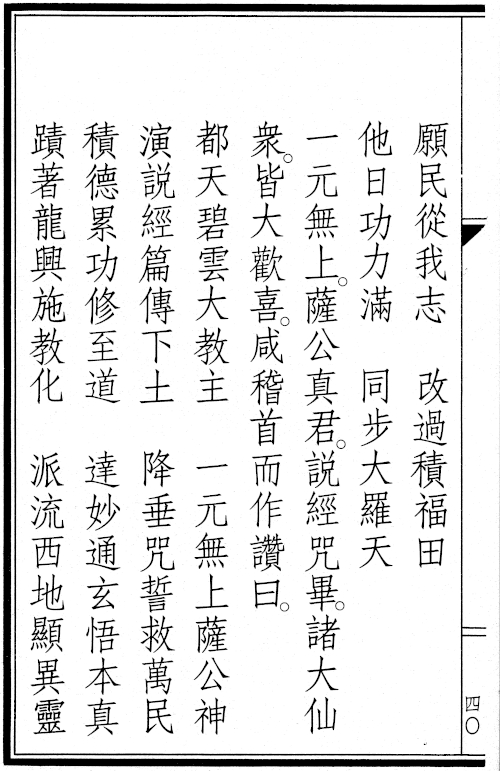 願民從我志　改過積福田
他日功力滿　同步大羅天
一元無上。薩公真君。說經咒畢。諸大仙
衆。皆大歡喜。咸稽首而作讚曰。
都天碧雲大教主　一元無上薩公神
演説經篇傳下土　降垂咒誓救萬民
積德累功修至道　達妙通玄悟本真
蹟著龍興施教化　派流西地顯異靈
四〇